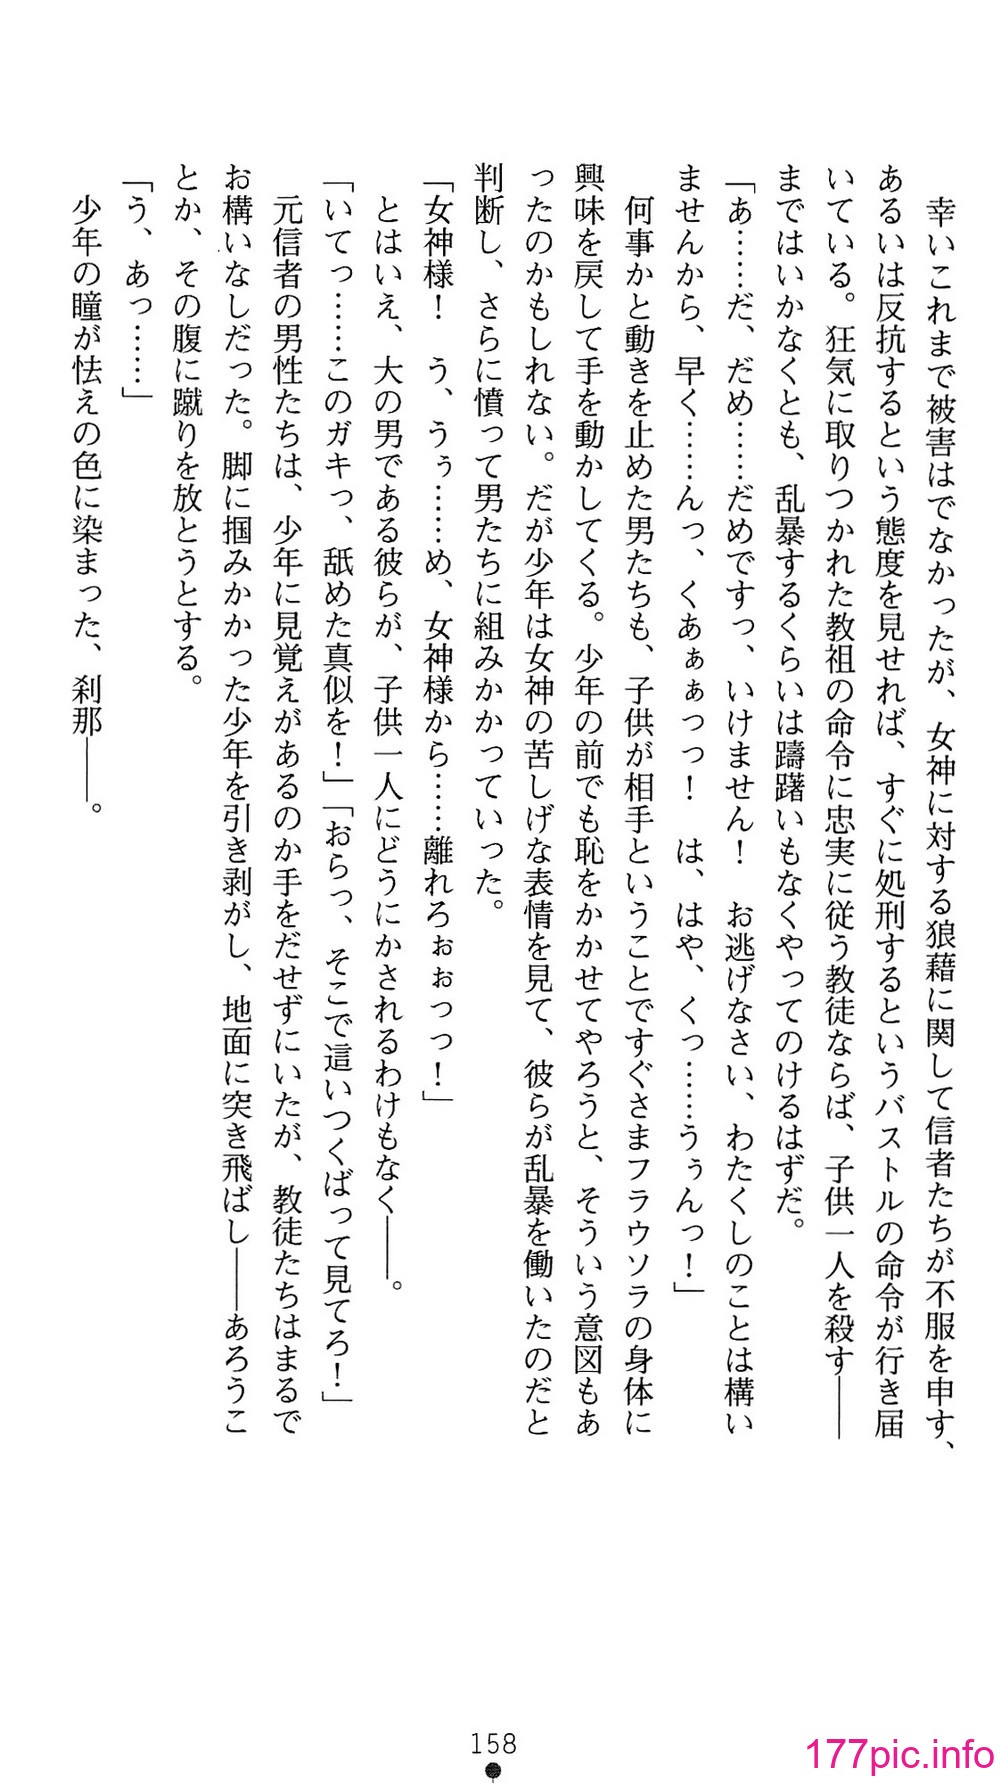 幸いこれまで被害はでなかったが、女神に対する狼藉に関して信者たちが不服を申す、
あるいは反抗するという態度を見せれば、すぐに処刑するというバストルの命令が行き届
いている。狂気に取りつかれた教祖の命令に忠実に従う教徒ならば、子供一人を殺す――
まではいかなくとも、乱暴するくらいは躊躇いもなくやってのけるはずだ。
「あ……だ、だめ……だめですっ、いけません！　お逃げなさい、わたくしのことは構い
ませんから、早く……んっ、くあぁぁっっ！　は、はや、くっ……うぅんっ！」
何事かと動きを止めた男たちも、子供が相手ということですぐさまフラウソラの身体に
興味を戻して手を動かしてくる。少年の前でも恥をかかせてやろうと、そういう意図もあ
ったのかもしれない。だが少年は女神の苦しげな表情を見て、彼らが乱暴を働いたのだと
判断し、さらに憤って男たちに組みかかっていった。
「女神様！　う、うぅ……め、女神様から……離れろぉぉっっ！」
とはいえ、大の男である彼らが、子供一人にどうにかされるわけもなく――。
「いてっ……このガキっ、舐めた真似を！」「おらっ、そこで這いつくばって見てろ！」
元信者の男性たちは、少年に見覚えがあるのか手をだせずにいたが、教徒たちはまるで
お構いなしだった。脚に掴みかかった少年を引き剥がし、地面に突き飛ばし――あろうこ
とか、その腹に蹴りを放とうとする。
「う、あっ……」
少年の瞳が怯えの色に染まった、刹那――。
158
177pic.info